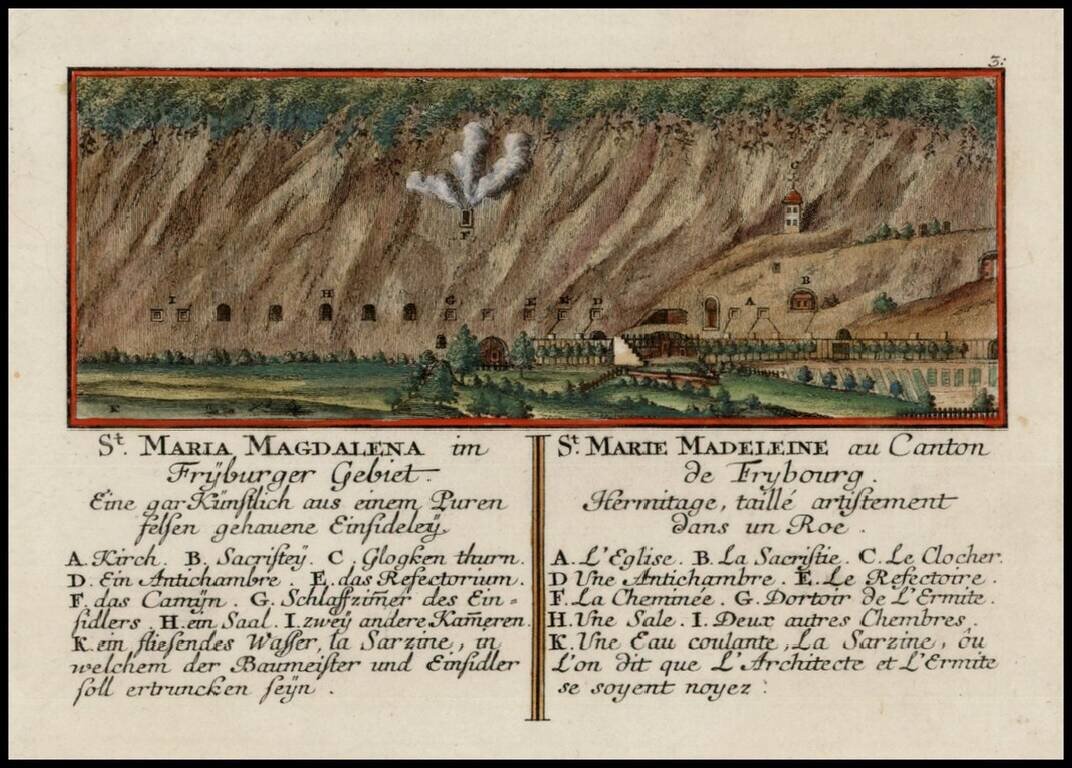 3.
C
F
I
H
G
E
D
A
B
K
St. MARIA MAGDALENA im
Frÿburger Gebiet.
Eine gar Künstlich aus einem Puren
felsen gehauene Einsideleÿ
A. Kirch. B. Sacristeÿ. C. Glogken thurn.
D. Ein Antichambre. E. das Refectorium.
F. das Camÿn. G. Schlaffzim̄er des Ein=
sidlers. H. ein Saal. I. zweÿ andere Kam̄eren.
K. ein fliesendes Wasser, la Sarzine, in
welchem der Baumeister und Einsidler
soll ertruncken seÿn.
St. MARIE MADELEINE au Canton
de Frybourg.
Hermitage, taillé artistement
dans un Roc.
A. L'Eglise. B. La Sacristie. C. Le Clocher.
D Une Antichambre. E. Le Refectoire.
F. La Cheminée. G. Dortoir de L'Ermite.
H. Une Sale. I. Deux autres Chembres.
K. Une Eau coulante, La Sarzine, ôu
L'on dit que L'Architecte et L'Ermite
se soyent noyez: